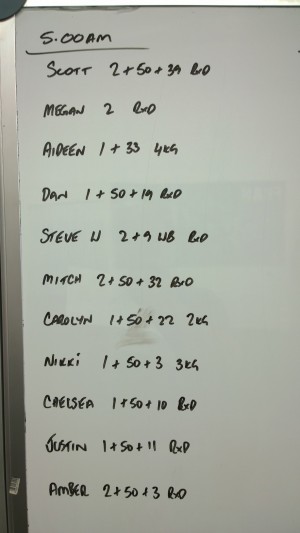 5.00AM
SCOTT 2+50+39 RxD
MEGAN 2 RxD
AIDEEN 1+33 4KG
DAN 1+50+19 RxD
STEVE W 2+9 WB RxD
MITCH 2+50+32 RxD
CAROLYN 1+50+22 2KG
NIKKI 1+50+3 3KG
CHELSEA 1+50+10 RxD
JUSTIN 1+50+11 RxD
AMBER 2+50+3 RxD